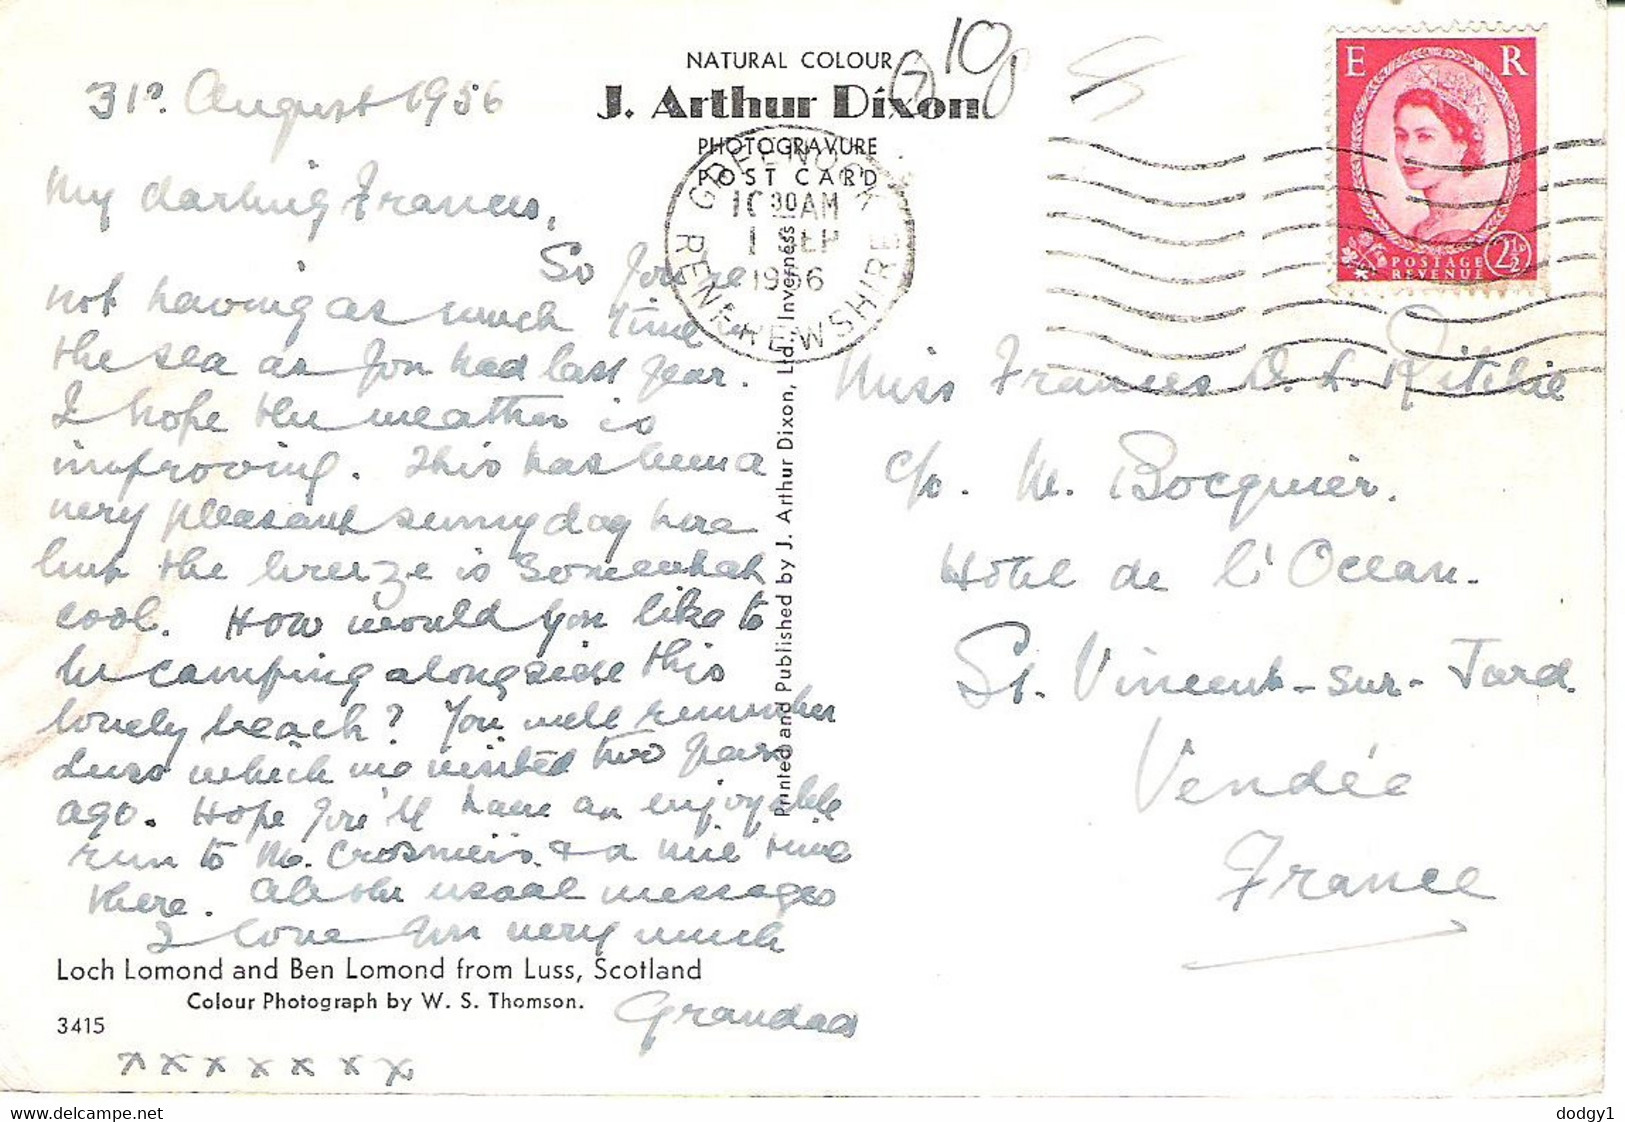 NATURAL COLOUR
J. Arthur Dixon
PHOTOGRAVURE
POST CARD
10
E R
POSTAGE
REVENUE
2½D
GREENOCK
10 30 AM
1 SEP
1956
RENFREWSHIRE
31st August 1956
My darling Frances,
So you're
not having as much time
the sea as you had last year.
I hope the weather is
improving. This has been a
very pleasant sunny day here
but the breeze is somewhat
cool. How would you like to
be camping alongside this
lovely beach? You will remember
Luss which we visited two years
ago. Hope you'll have an enjoyable
run to M. & a nice time
there. All the usual messages
I love you very much
Grandad
x x x x x x x
Miss Frances D. L. Ritchie
c/o. M. Bocquier.
Hôtel de l'Ocean.
St. Vincent-sur-Jard.
Vendée
France
Printed and Published by J. Arthur Dixon, Ltd., Inverness
Loch Lomond and Ben Lomond from Luss, Scotland
Colour Photograph by W. S. Thomson.
3415
delcampe.net
dodgy1